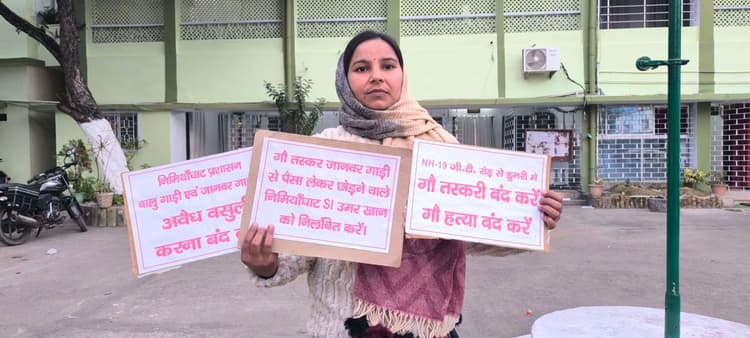 निमियाँघाट प्रशासन
बालु गाड़ी एवं जानवर
अवैध वसुली
करना बंद
गौ तस्कर जानवर गाड़ी
से पैसा लेकर छोड़ने वाले
निमियाँघाट SI उमर खान
को निलंबित करें।
NH-19 जी.टी. रोड़ से डुमरी मे
गौ तस्करी बंद करें
गौ हत्या बंद करें